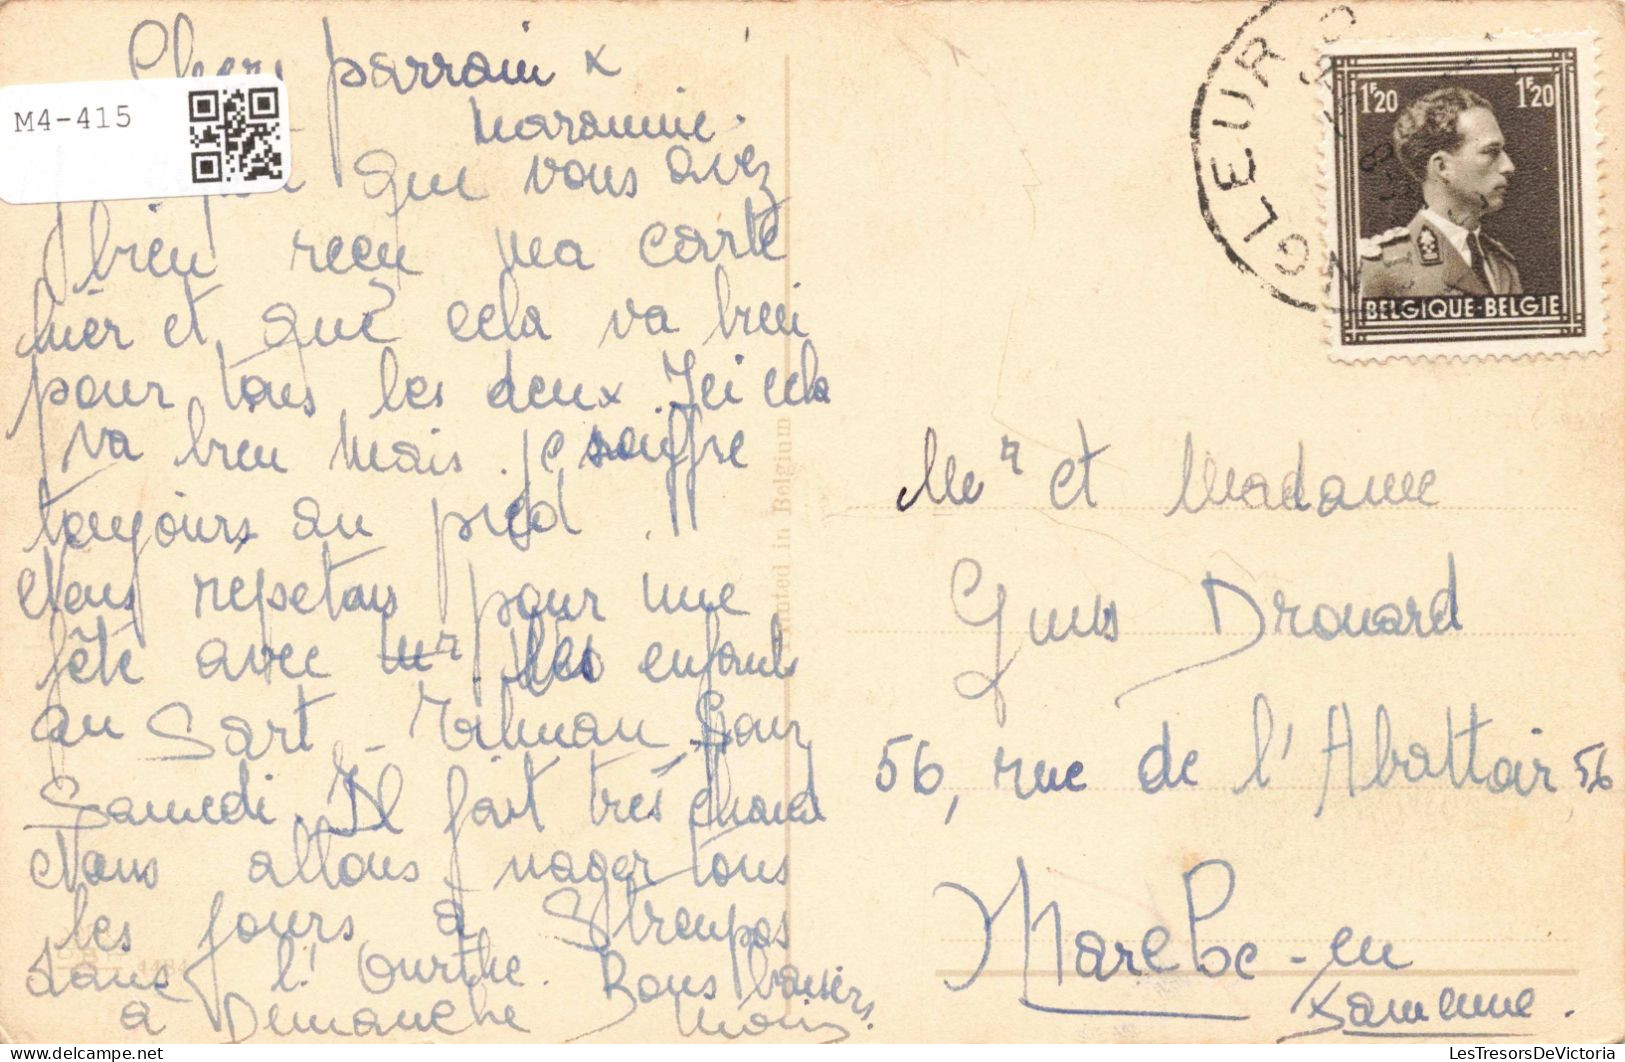 Chers parrain x
M4-415
Maramie.
que vous avez
bien reçu ma carte
hier et que cela va bien
pour tous les deux. Ici cela
va bien mais je souffre
toujours au pied.
Nous repetons pour une
fête avec les enfants
au Sart-Tilman pour
Samedi. Il fait très chaud
Nous allons nager tous
les jours à Streupas
dans l'Ourthe. Bons baisers
à Dimanche
Printed in Belgium
ANGLEUR
1F20 1F20
BELGIQUE-BELGIE
Mr et Madame
Drouard
56, rue de l'Abattoir 56
Marche-en
Famenne.
LesTresorsDeVictoria
delcampe.net